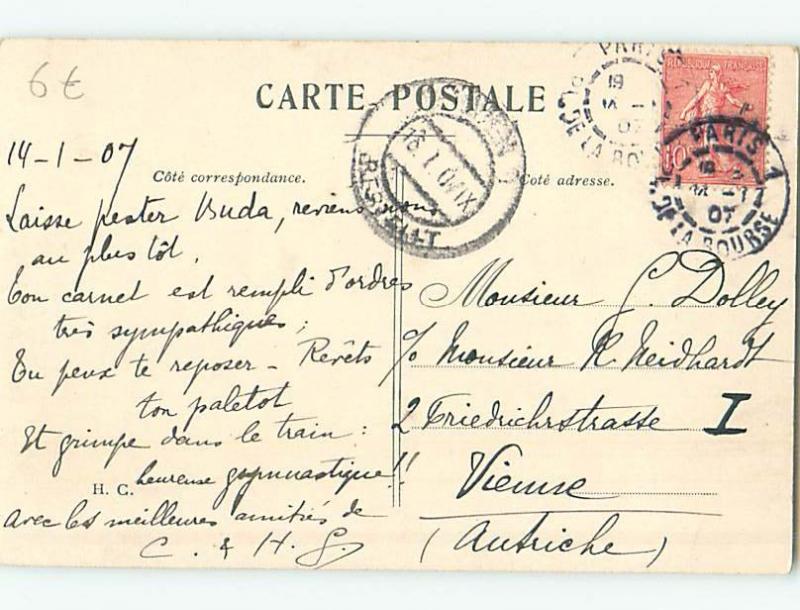 6€
CARTE POSTALE
14-1-07
Côté correspondance.
Côté adresse.
Laisse pester Buda, reviens nous
au plus tôt.
Ton carnet est rempli d'ordres
très sympathiques ;
Tu peux te reposer - Revêts
ton paletot
Et grimpe dans le train :
heureuse gymnastique !!
H. C.
Avec les meilleures amitiés de
C. & H. G.
Monsieur G. Dolley
c/o Monsieur R. Neidhardt
2 Friedrichstrasse I
Vienne
(Autriche)
REPUBLIQUE FRANÇAISE
10
PARIS
DE LA BOURSE
07
PARIS 1
DE LA BOURSE
07
WIEN
16.I.07.IX
BESTELLT